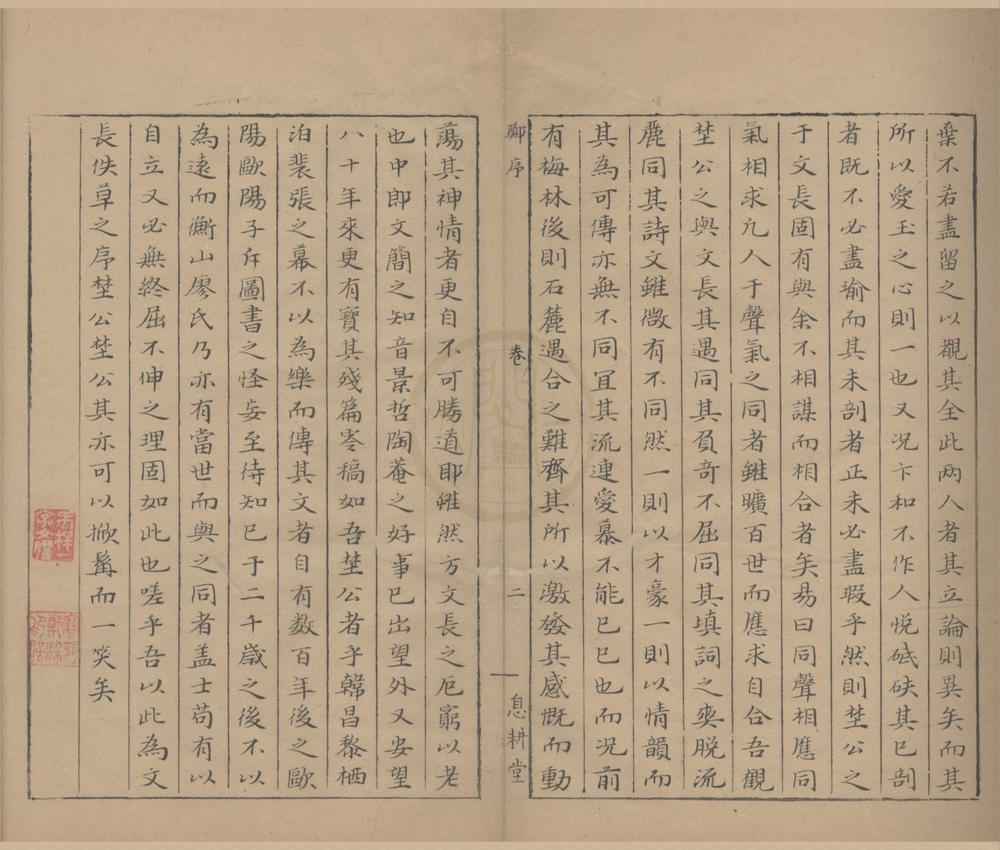 棄不若盡留之以觀其全此兩人者其立論則異矣而其
所以愛玉之心則一也又況卞和不作人悅砥砆其已剖
者既不必盡瑜而其未剖者正未必盡瑕乎然則埜公之
于文長固有與余不相謀而相合者矣易曰同聲相應同
氣相求凡人于聲氣之同者雖曠百世而應求自合吾觀
埜公之與文長其遇同其負奇不屈同其填詞之爽脫流
麗同其詩文雖微有不同然一則以才豪一則以情韻而
其為可傳亦無不同冝其流連愛慕不能已已也而況前
有梅林後則石麓遇合之難齊其所以激發其感慨而動
鄭序
卷
二
息耕堂
蕩其神情者更自不可勝道耶雖然方文長之厄窮以老
也中郎文簡之知音景哲陶菴之好事已出望外又安望
八十年來更有寶其殘篇零稿如吾埜公者乎韓昌黎栖
泊裴張之幕不以為樂而傳其文者自有數百年後之歐
陽歐陽子斥圖書之怪妄至待知已于二千歲之後不以
為遠而衡山廖氏乃亦有當世而與之同者盖士苟有以
自立又必無終屈不伸之理固如此也嗟乎吾以此為文
長佚草之序埜公埜公其亦可以掀髯而一笑矣